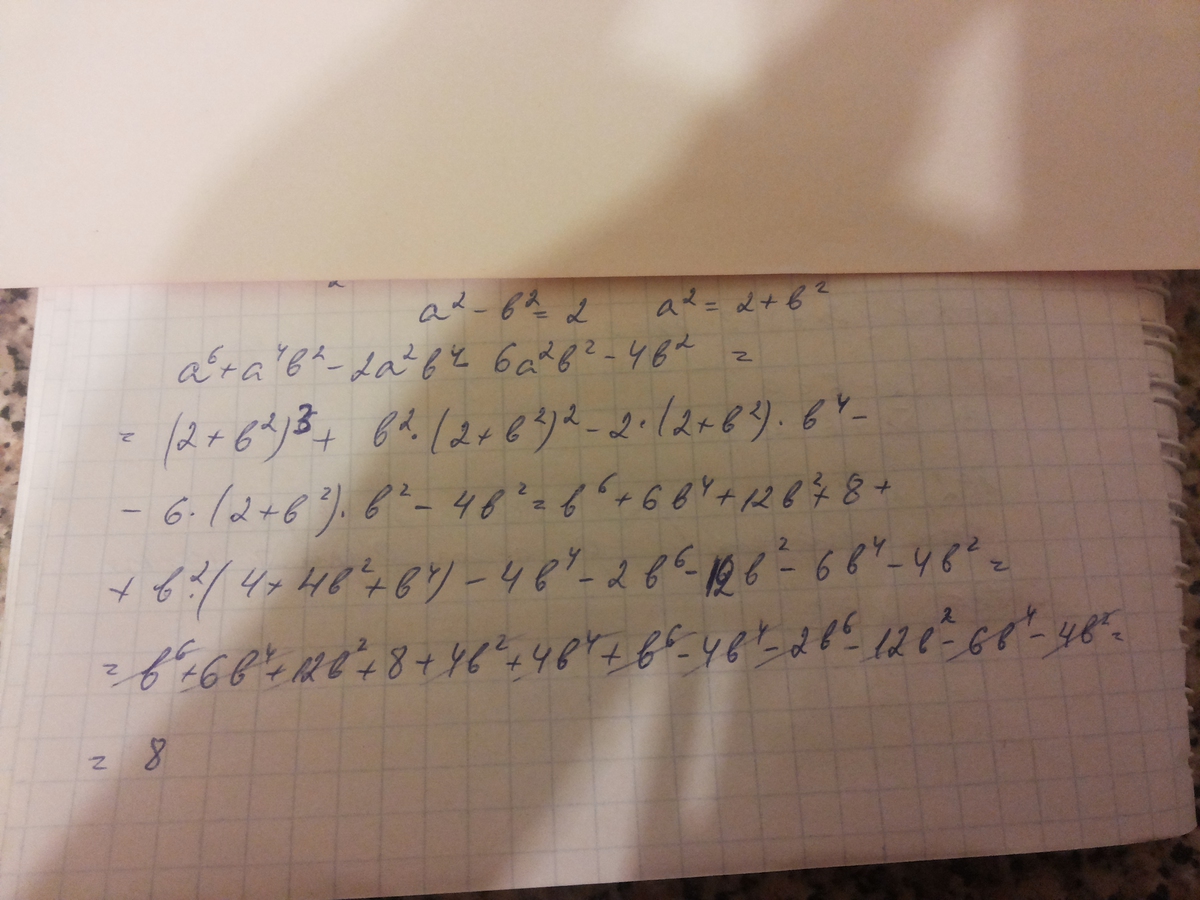 a² - b² = 2 a² = 2 + b²
a⁶ + a⁴b² - 2a²b⁴ - 6a²b² - 4b² =
= (2 + b²)³ + b² · (2 + b²)² - 2 · (2 + b²) · b⁴ -
- 6 · (2 + b²) · b² - 4b² = b⁶ + 6b⁴ + 12b² + 8 +
+ b² · (4 + 4b² + b⁴) - 4b⁴ - 2b⁶ - 12b² - 6b⁴ - 4b² =
= b⁶ + 6b⁴ + 12b² + 8 + 4b² + 4b⁴ + b⁶ - 4b⁴ - 2b⁶ - 12b² - 6b⁴ - 4b² =
= 8